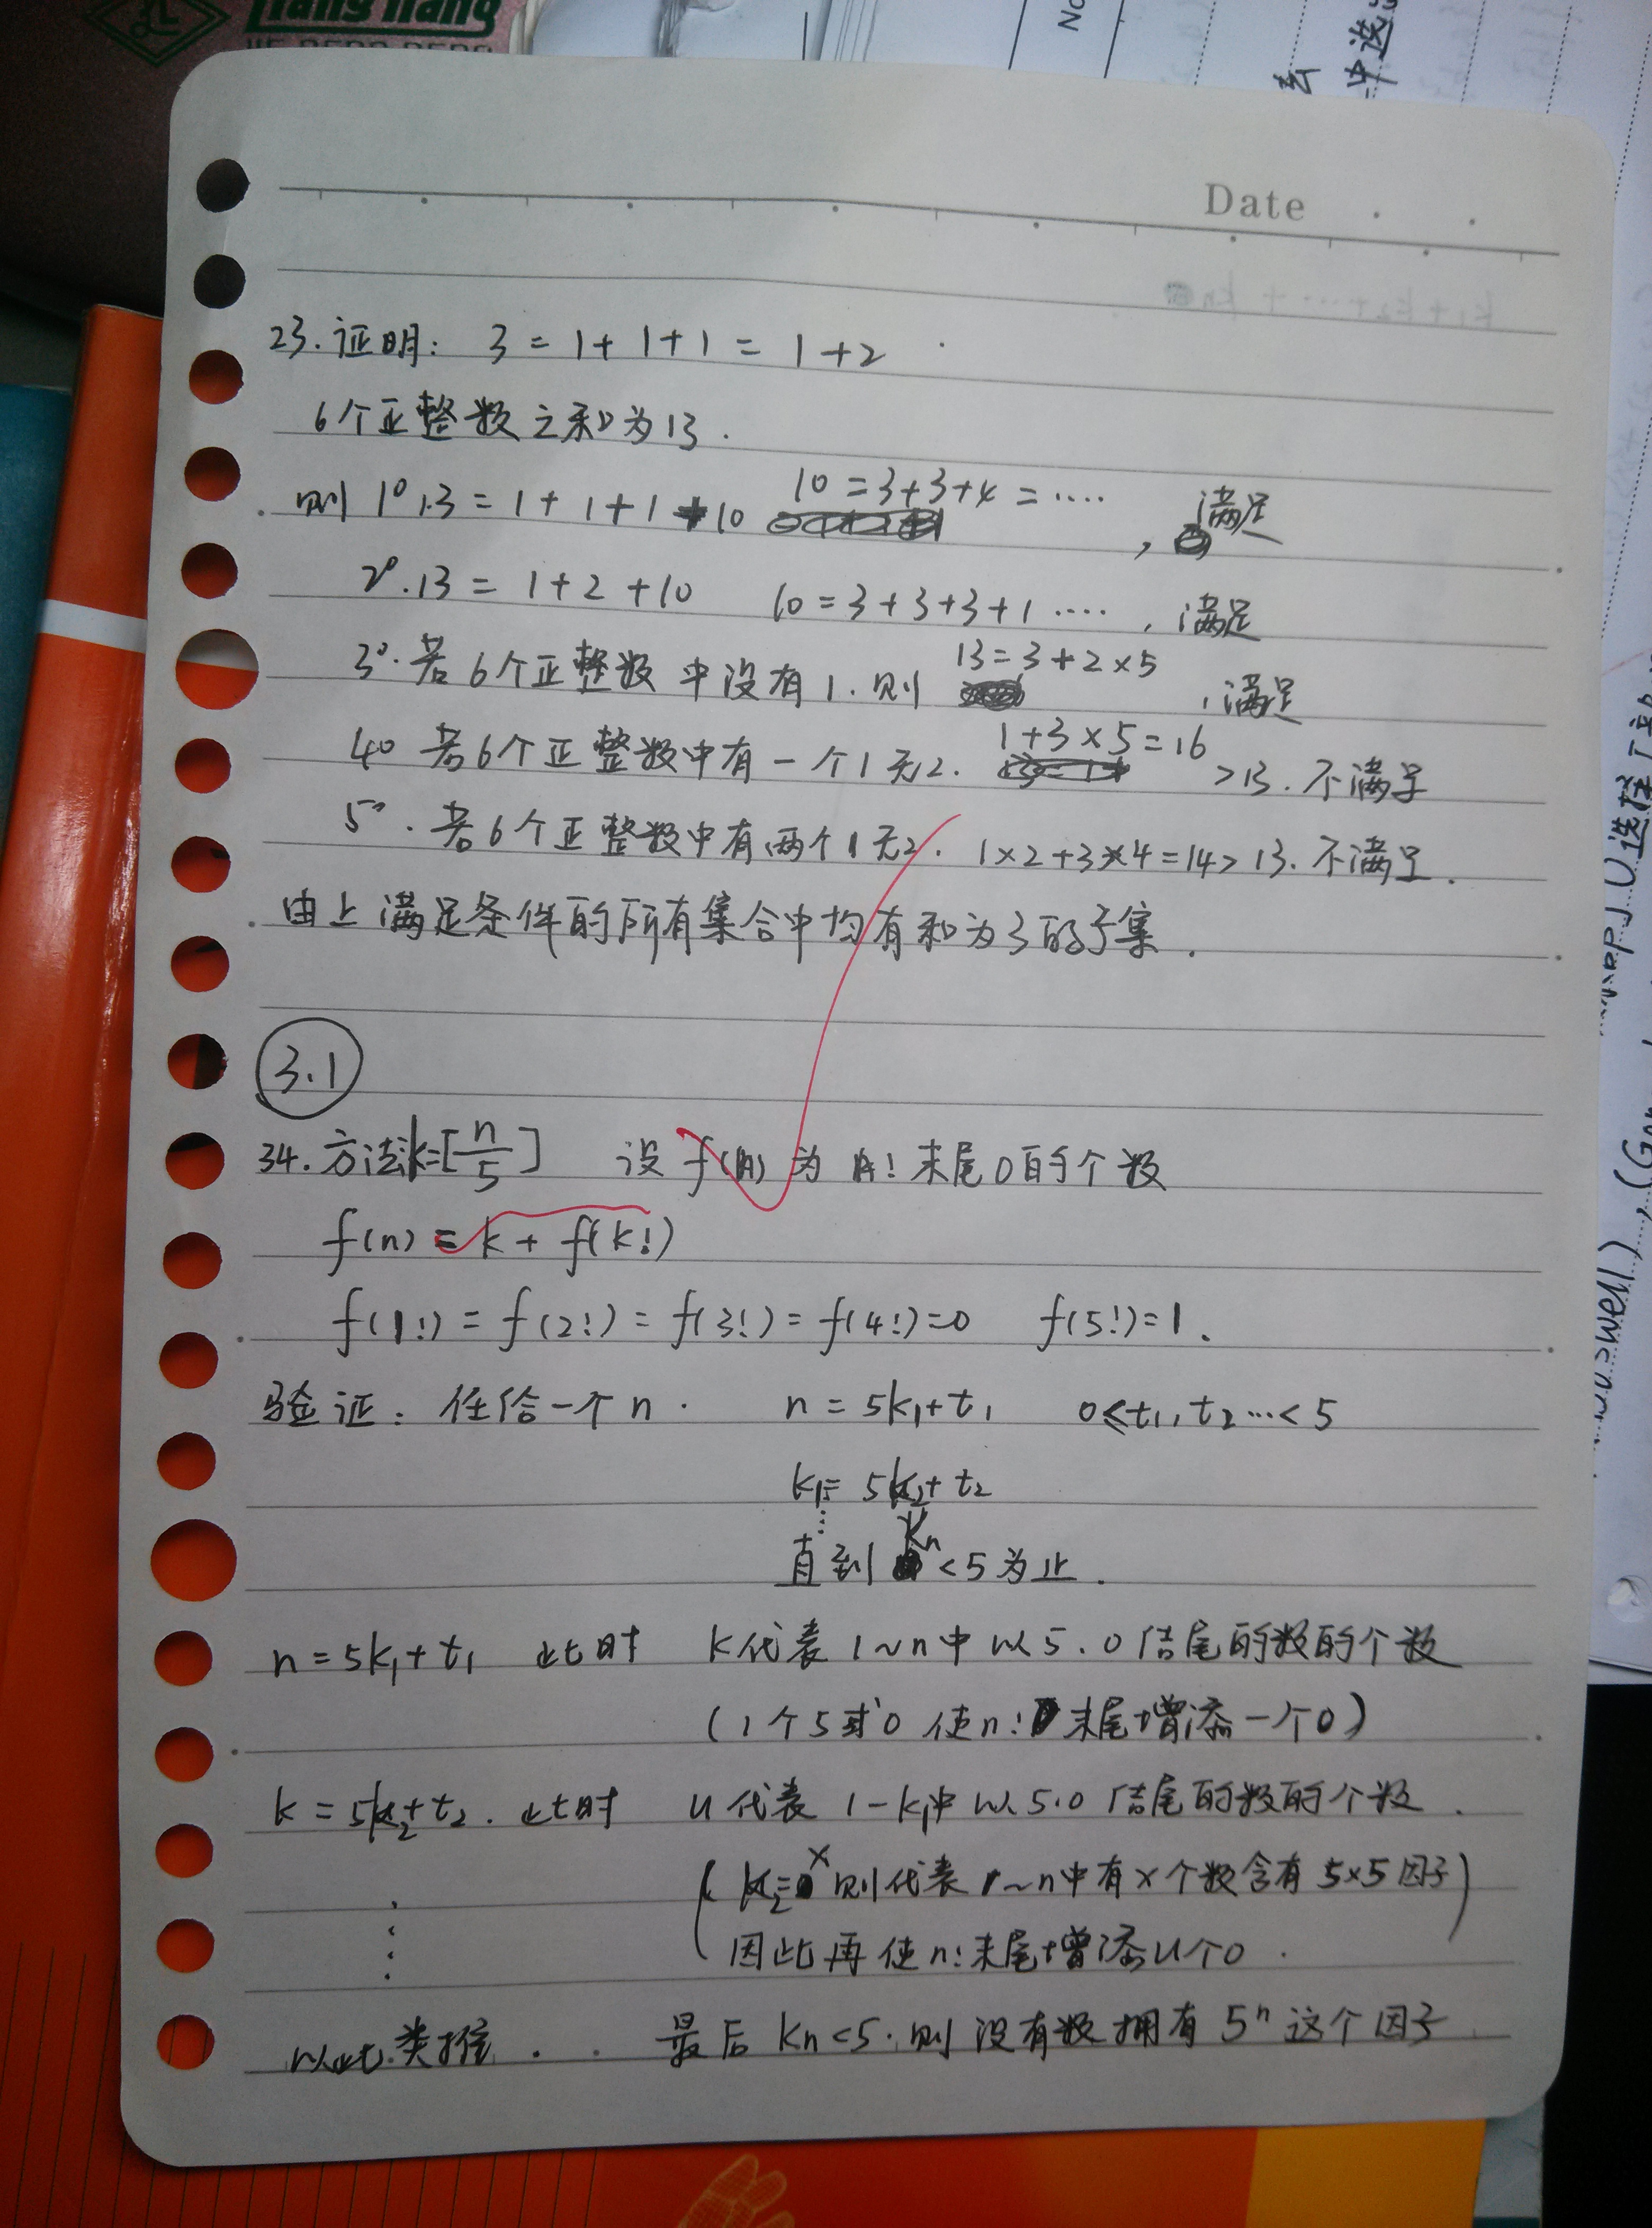 Liang liang
Date
23. 证明: 3 = 1+1+1 = 1+2
6个正整数之和为13.
则 1° 13 = 1+1+1+10 10=3+3+4=.... , 满足
2°. 13 = 1+2+10 10=3+3+3+1 ...., 满足
3°. 若6个正整数中没有1. 则 13=3+2×5 , 满足
4° 若6个正整数中有一个1无2. 1+3×5=16 >13. 不满足
5°. 若6个正整数中有两个1无2. 1×2+3×4=14>13. 不满足.
由上满足条件的所有集合中均有和为3的子集.
3.1
34. 方法 k=[n/5] 设 f(n) 为 n! 末尾0的个数
f(n) = k + f(k!)
f(1!) = f(2!) = f(3!) = f(4!)=0 f(5!)=1.
验证: 任给一个n. n = 5k₁+t₁ 0≤t₁, t₂...<5
k₁= 5k₂+t₂
⋮
直到 kn <5为止.
n=5k₁+t₁ 此时 k代表1~n中以5.0结尾的数的个数
(1个5或0使n!末尾增添一个0)
k=5k₂+t₂. 此时 u代表1-k₁中以5.0结尾的数的个数.
(k₂=x则代表1~n中有x个数含有5×5因子)
因此再使n!末尾增添u个0.
⋮
以此类推. . 最后kn<5.则没有数拥有5ⁿ这个因子